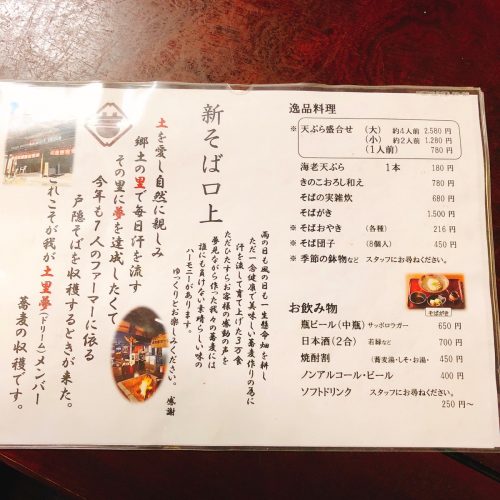 新そば口上
土を愛し自然に親しみ
郷土の里で毎日汗を流す
その里に夢を達成したくて
今年も7人のファーマーに依る
戸隠そばを収穫するときが来た。
これこそが我が土里夢(ドリーム)メンバー
蕎麦の収穫です。
雨の日も風の日も一生懸命畑を耕し
ただ一念健康で美味しい蕎麦作りの為に
汗を流して育て上げた3万食
ただひたすらお客様の感動の声を
夢見ながら作った我々の蕎麦には
誰にも負けない素晴らしい味の
ハーモニーがあります。
ゆっくりとお楽しみください。 感謝
逸品料理
※ 天ぷら盛合せ (大) 約4人前 2.580 円
(小) 約2人前 1.280 円
(1人前) 780 円
海老天ぷら 1本 180 円
きのこおろし和え 380 円
そばの実雑炊 680 円
そばがき 1,500 円
※ そばおやき (各種) 216 円
※ そば団子 (8個入) 450 円
※ 季節の鉢物など スタッフにお尋ねください。
そばがき
お飲み物
瓶ビール(中瓶) サッポロラガー 650 円
日本酒(2合) 若緑など 700 円
焼酎割 (蕎麦湯・しそ・お湯・ 450 円
ノンアルコール・ビール 400 円
ソフトドリンク スタッフにお尋ねください。
250 円〜